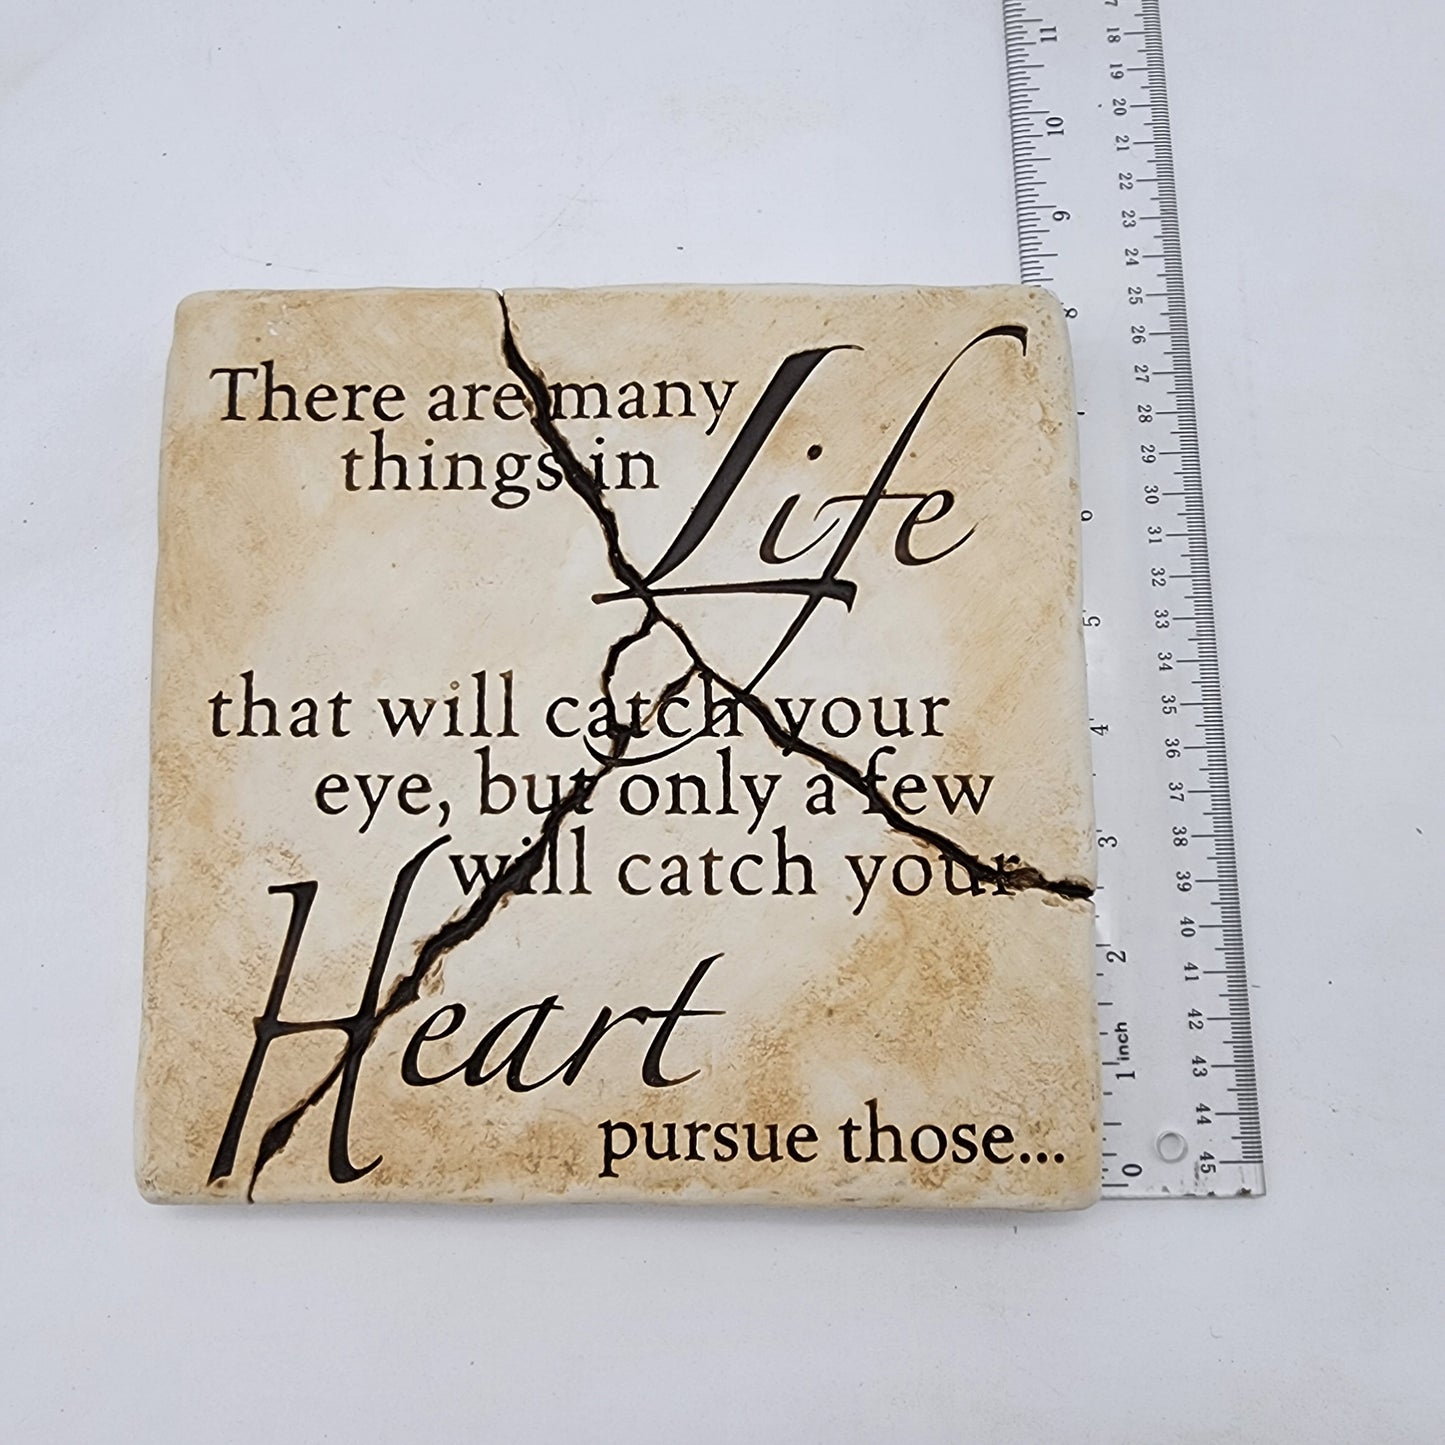 There are many Life
things in
that will catch your
eye, but only a few
will catch your
Heart
pursue those...
11
10
9
8
6
5
4
3
2
1 inch
0
7
18
19
20
21
22
23
24
25
26
27
28
29
30
31
32
33
34
35
36
37
38
39
40
41
42
43
44
45